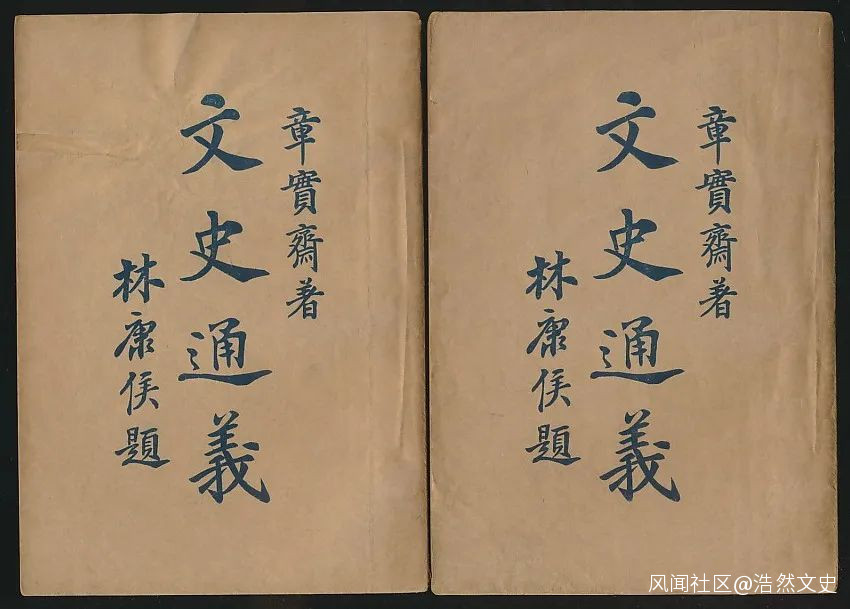 章實齋著
文史通義
林康侯題
章實齋著
文史通義
林康侯題
风闻社区@浩然文史